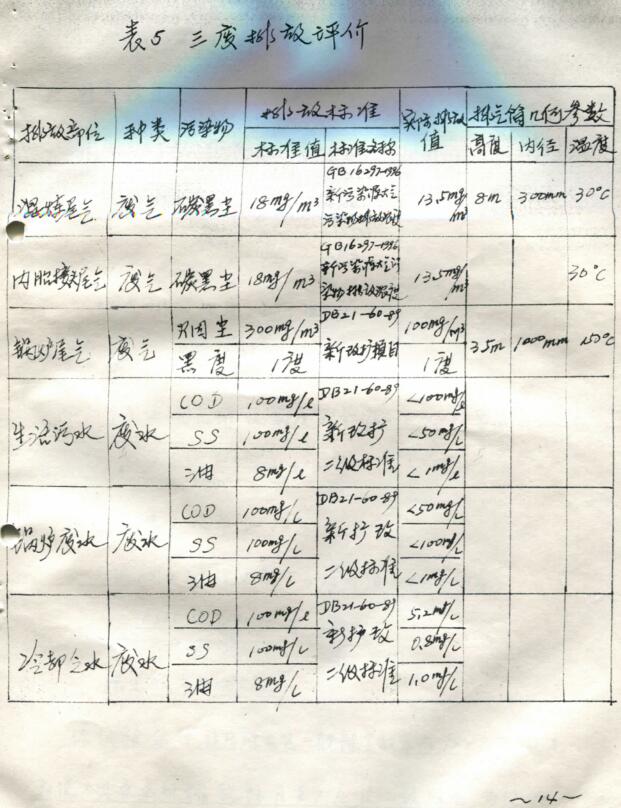 表5 三废排放评价
排放部位 种类 污染物 排放标准 实际排放值 排气筒几何参数
标准值 标准名称 高度 内径 温度
混炼尾气 废气 碳黑尘 18mg/m³ GB16297-1996 新污染源大气污染物排放限值 13.5mg/m³ 8m 300mm 30°C
内胎接头尾气 废气 碳黑尘 18mg/m³ GB16297-1996 新污染源大气污染物排放限值 13.5mg/m³ 30°C
锅炉尾气 废气 烟尘 300mg/m³ DB21-60-89 新改扩项目 100mg/m³ 35m 1000mm 150°C
黑度 1度 1度
生活污水 废水 COD 100mg/l DB21-60-89 新改扩二级标准 <100mg/l
SS 100mg/l <50mg/L
油 8mg/l <1mg/l
锅炉废水 废水 COD 100mg/L DB21-60-89 新扩改二级标准 <50mg/L
SS 100mg/L <100mg/L
油 8mg/L <1mg/L
冷却水 废水 COD 100mg/l DB21-60-89 新扩改二级标准 5.2mg/L
SS 100mg/L 0.8mg/L
油 8mg/L 1.0mg/L
~14~